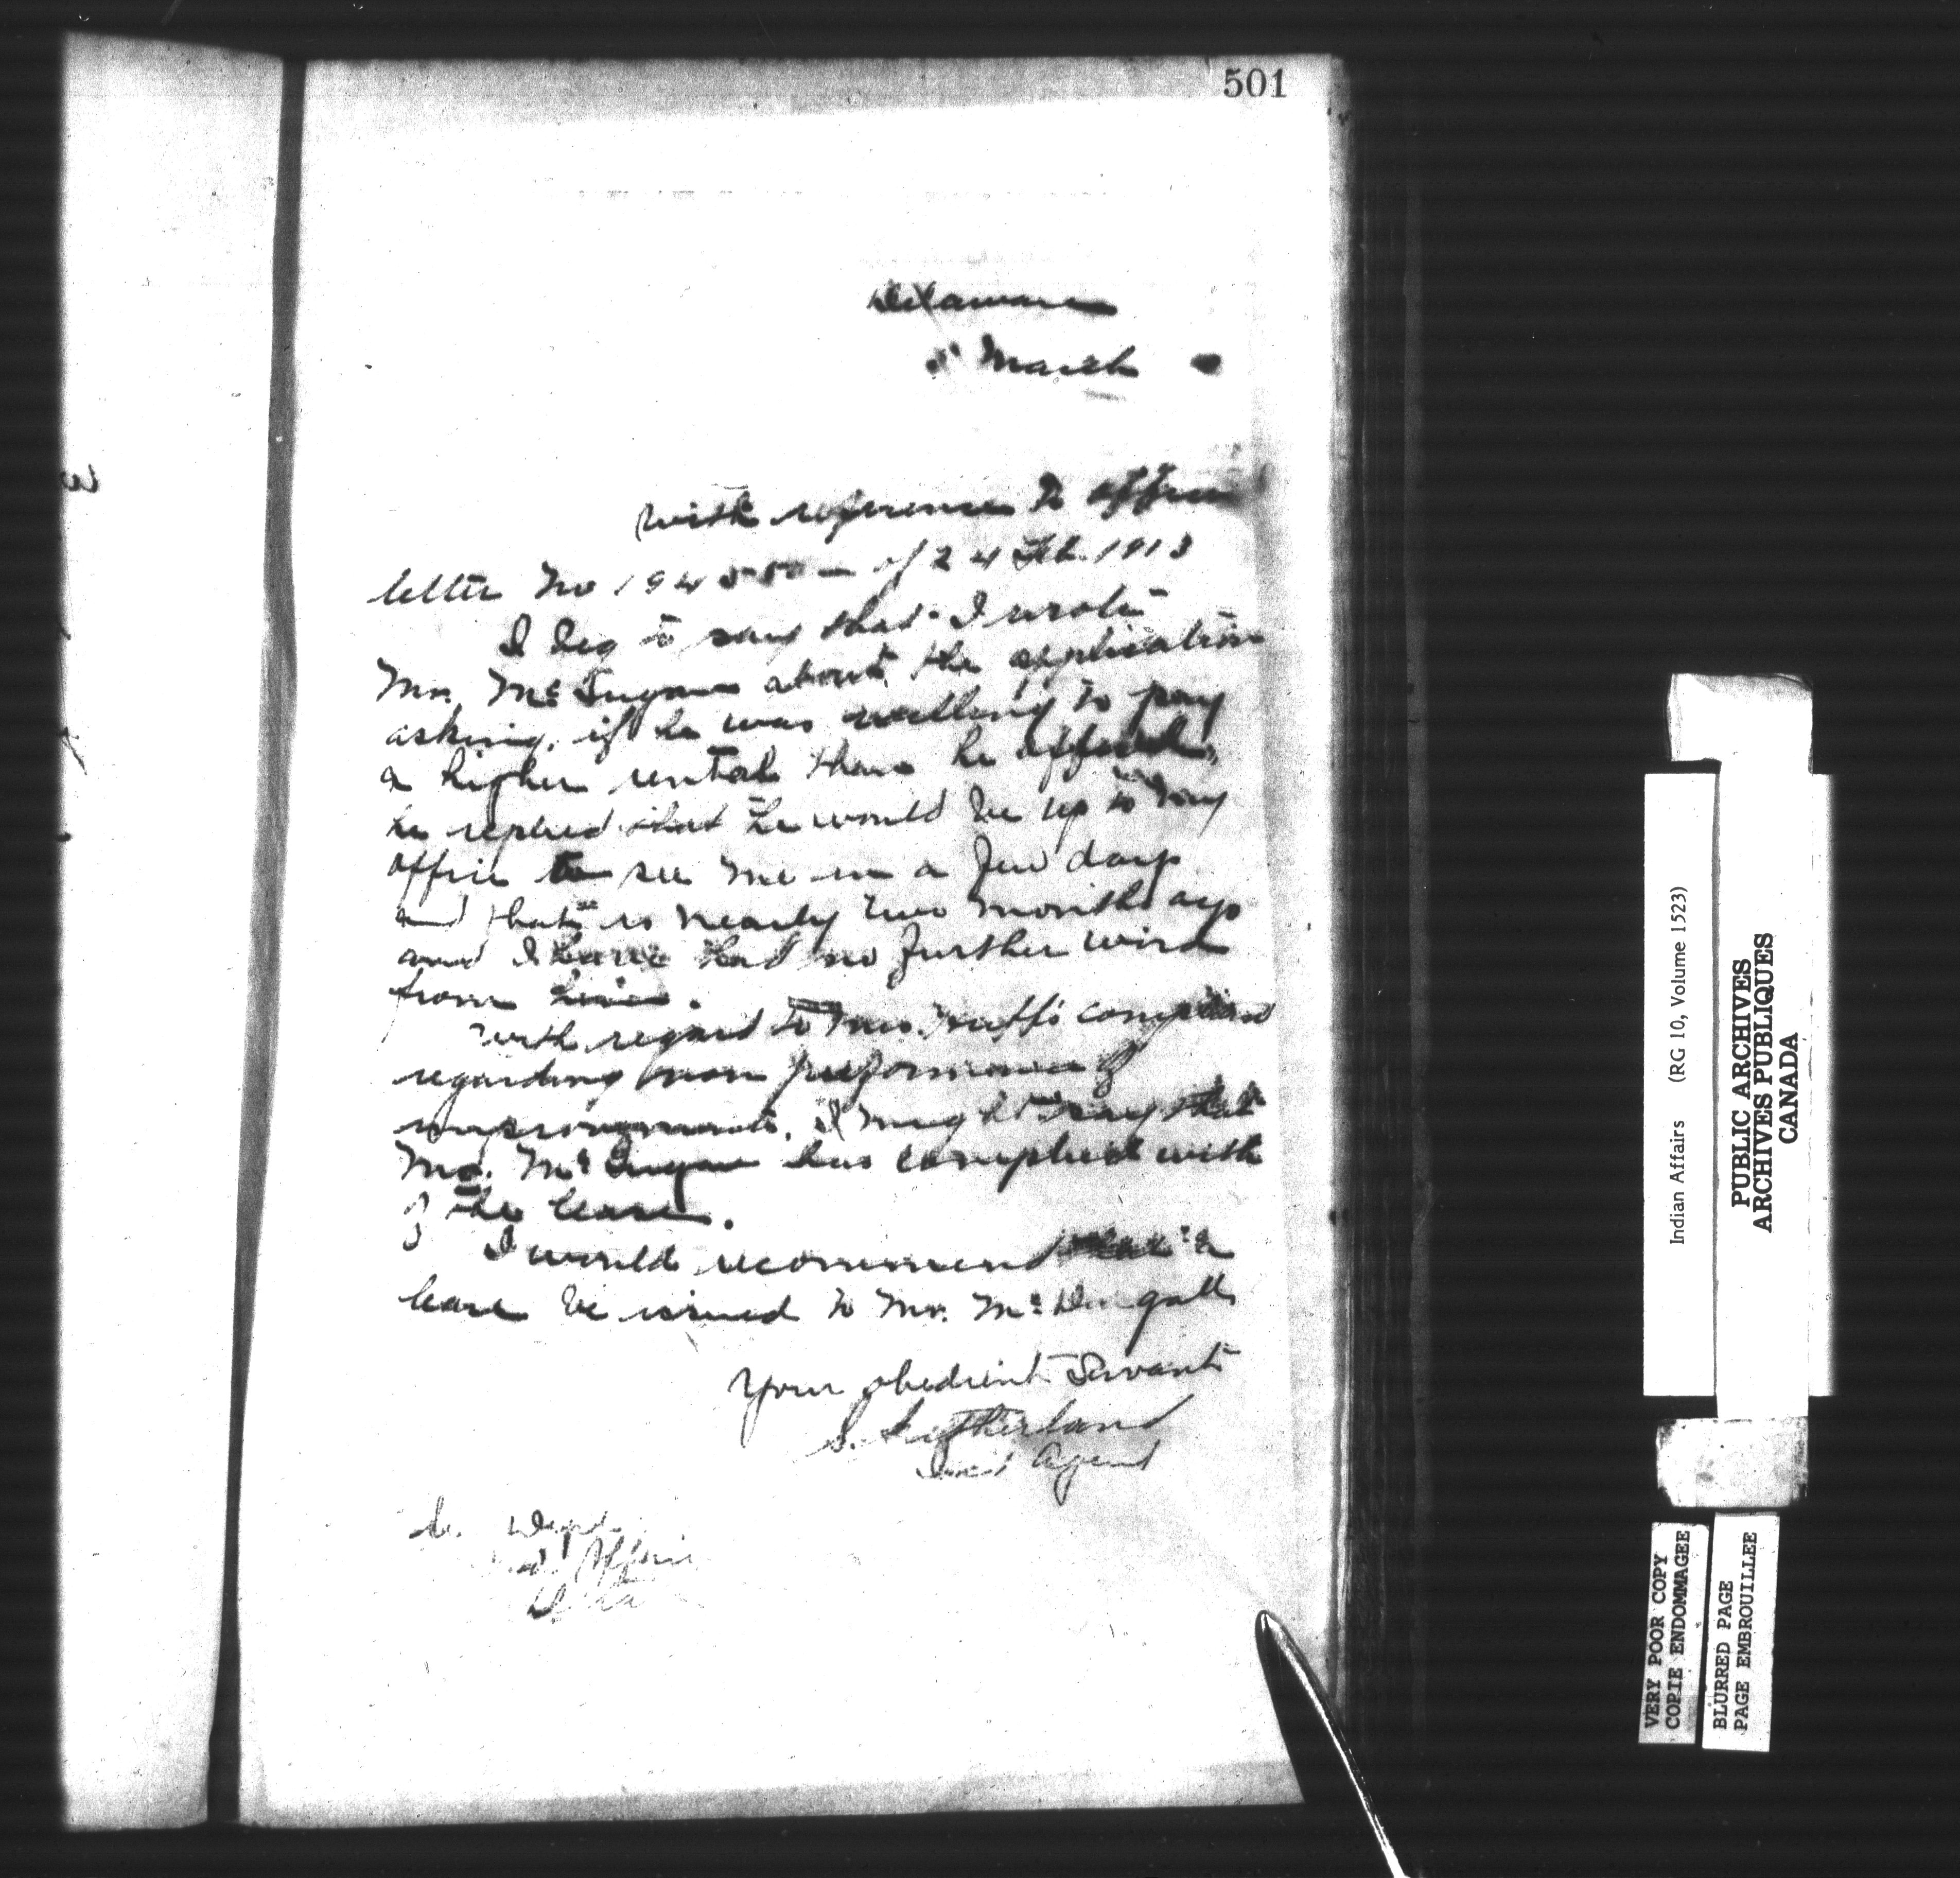 501
Delaware
March
With reference to office
letter No 194550 of 24 Feb. 1913
I beg to say that I wrote
Mr. about the application
asking, if he was willing to pay
a higher rental than he offered,
he replied that he would be up to my
office to see me in a few days
and that is nearly two months ago
and I have had no further word
from him.
With regard to complaint
regarding non performance of
improvements, I might say that
Mr. has complied with
the lease.
I would recommend that a
lease be issued to Mr. McDougall
Your obedient Servant
S. Sutherland
Ind Agent
Dept.
Ind. Affairs
Indian Affairs (RG 10, Volume 1523)
PUBLIC ARCHIVES
ARCHIVES PUBLIQUES
CANADA
VERY POOR COPY
COPIE ENDOMMAGEE
BLURRED PAGE
PAGE EMBROUILLEE